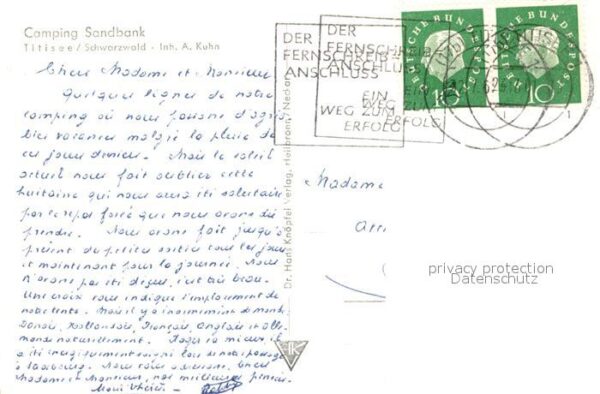 Camping Sandbank
Titisee / Schwarzwald - Inh. A. Kuhn
Chere Madame et Monsieur
Quelques lignes de notre
camping où nous passons d'agréa
bles vacances malgré la pluie de
ces jours derniers. Mais le soleil
actuel nous fait oublier cette
huitaine qui nous aura été salutaire
par le repos forcé que nous avons dû
prendre. Nous avons fait jusqu'à
présent de petites sorties tous les jours
et maintenant pour la journée. Nous
n'avons pas été déçus, c'est très beau.
Une croix vous indique l'emplacement de
notre tente. Mais il y a énormément de monde
Danois, Hollandais, Français, Anglais et alle-
mands naturellement. Roger
a été
à Strasbourg. Nous vous adressons, Chère
Madame et Monsieur, nos meilleures pensées.
Dr. Hans Knöpfel Verlag, Heilbronn / Neckar
DER
FERNSCHREIB-
ANSCHLUSS
EIN
WEG ZUM
ERFOLG
DER
FERNSCHREIB-
ANSCHLUSS
EIN
WEG ZUM
ERFOLG
DEUTSCHE BUNDESPOST
10
DEUTSCHE BUNDESPOST
10
Madame
privacy protection
Datenschutz